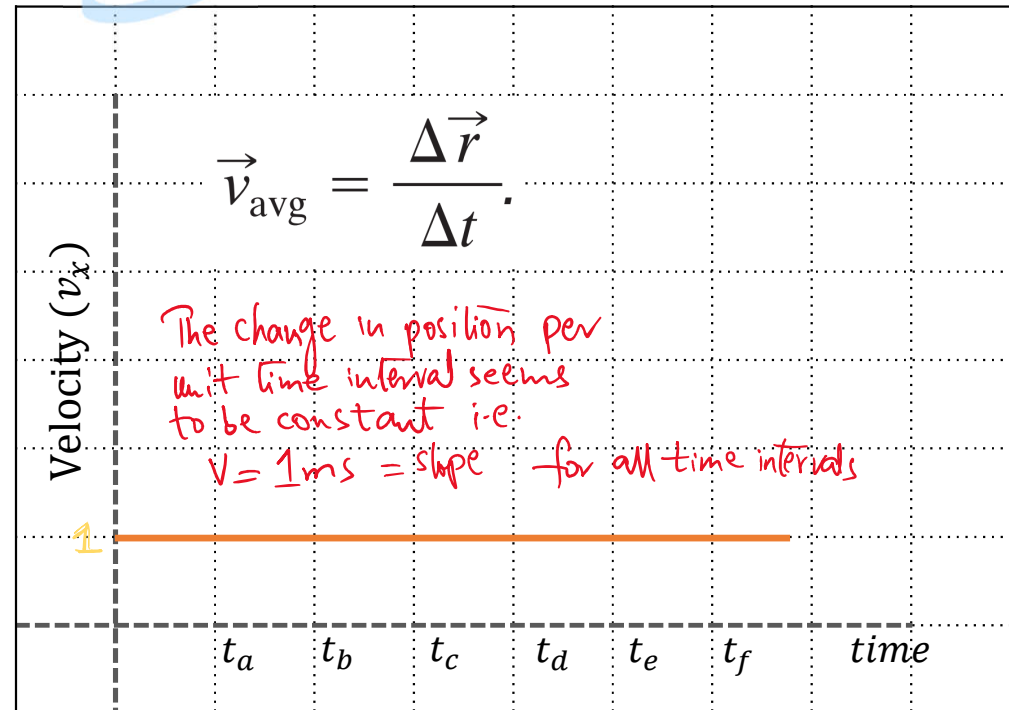 \vec{v}_{avg} = \frac{\Delta \vec{r}}{\Delta t}.
Velocity (v_x)
The change in position per
unit time interval seems
to be constant i.e.
V = 1ms = slope for all time intervals
1
t_a t_b t_c t_d t_e t_f time